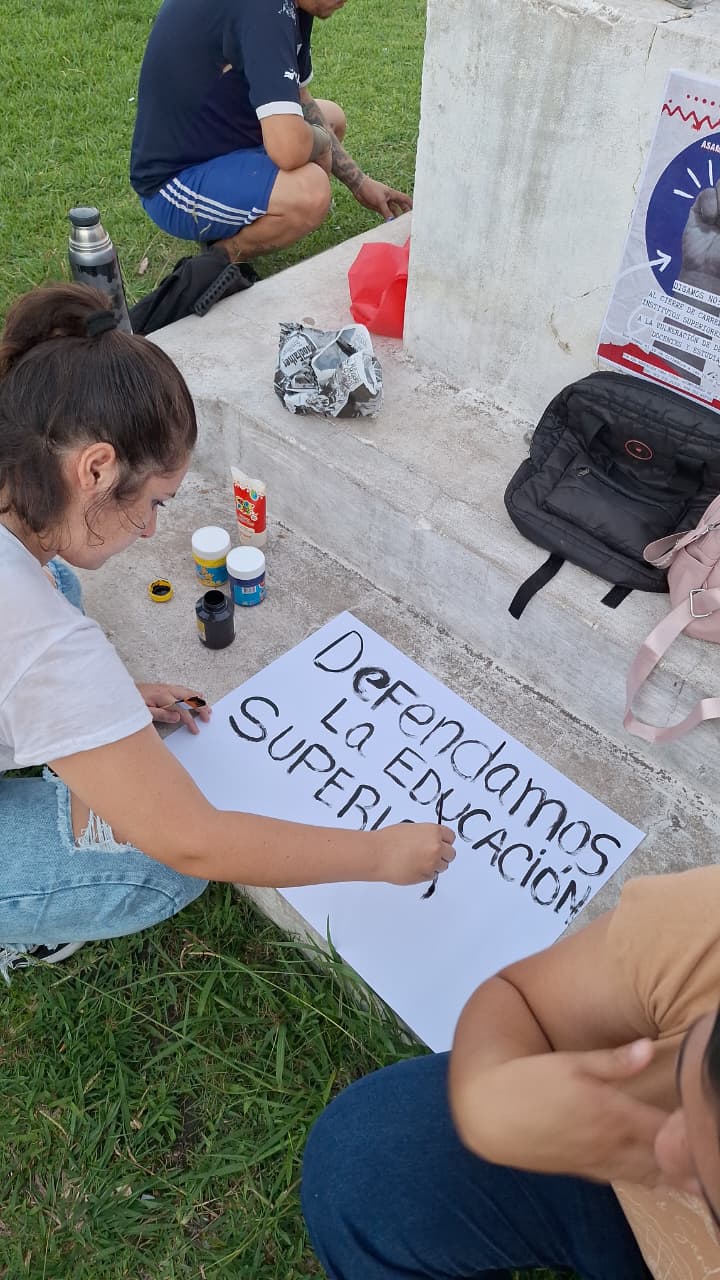 Defendamos
La EDUCACIÓN
SUPERI
DIGAMOS NO
AL CIERRE DE CARRE
INSTITUTOS SUPERIORE
A LA VULNERACIÓN DE DE
DOCENTES Y ESTUDI